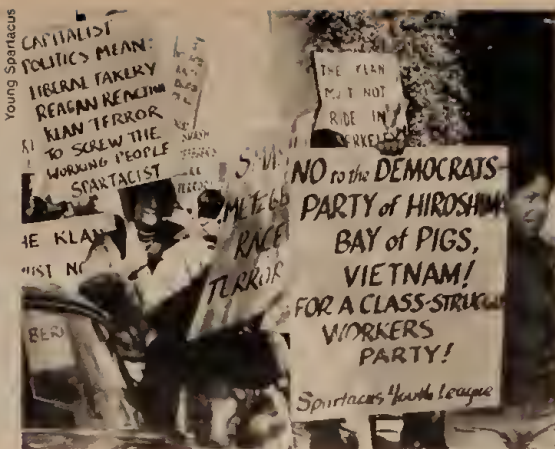 Young Spartacus
CAPITALIST
POLITICS MEAN:
LIBERAL FAKERY
REAGAN REACTION
KLAN TERROR
TO SCREW THE
WORKING PEOPLE
SPARTACIST
THE KLAN
NOT
RIDE IN
SMASH
RACE
TERROR
NO to the DEMOCRATS
PARTY of HIROSHIMA
BAY of PIGS,
VIETNAM!
FOR A CLASS-STRUGGLE
WORKERS
PARTY!
Spartacus Youth League
HE KLAN
BER